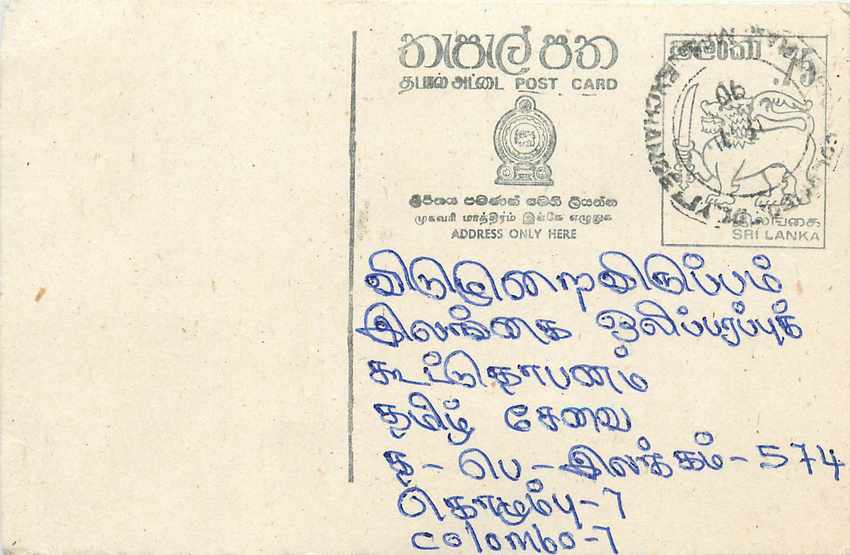 තැපැල් පත
தபால் அட்டை POST CARD
ලිපිනය පමණක් මෙහි ලියන්න
முகவரி மாத்திரம் இங்கே எழுதுக
ADDRESS ONLY HERE
ශ්‍රී ලංකා
இலங்கை
SRI LANKA
விடுமுறைவிருப்பம்
இலங்கை ஒலிப்பரப்புக்
கூட்டுதொபனம்
தமிழ் சேவை
த - பெ - இலக்கம் - 574
கொழும்பு - 7
Colombo - 7